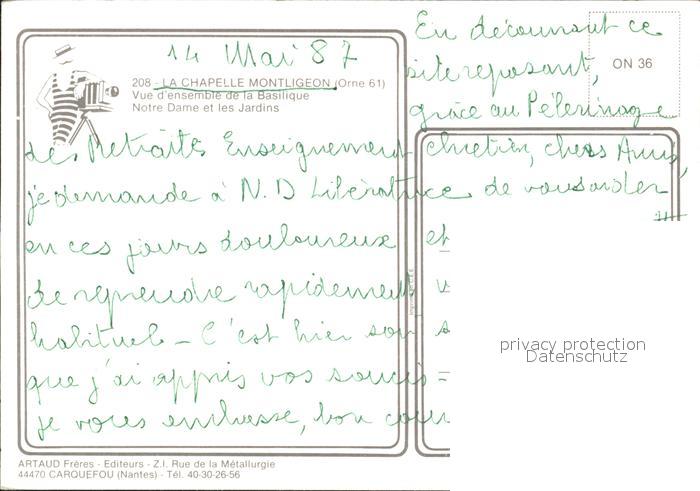 14 Mai 87
En découvrant ce
site reposant,
grâce au Pélerinage
ON 36
208 - LA CHAPELLE MONTLIGEON (Orne 61)
Vue d'ensemble de la Basilique
Notre Dame et les Jardins
des Retraités Enseignement Chrétien, chers Amis,
je demande à N.D Libératrice de vous aider
en ces jours douloureux et
de reprendre rapidement
habituel - C'est hier soir
que j'ai appris vos soucis =
je vous embrasse, bon
privacy protection
Datenschutz
ARTAUD Frères - Editeurs - Z.I. Rue de la Métallurgie
44470 CARQUEFOU (Nantes) - Tél. 40-30-26-56